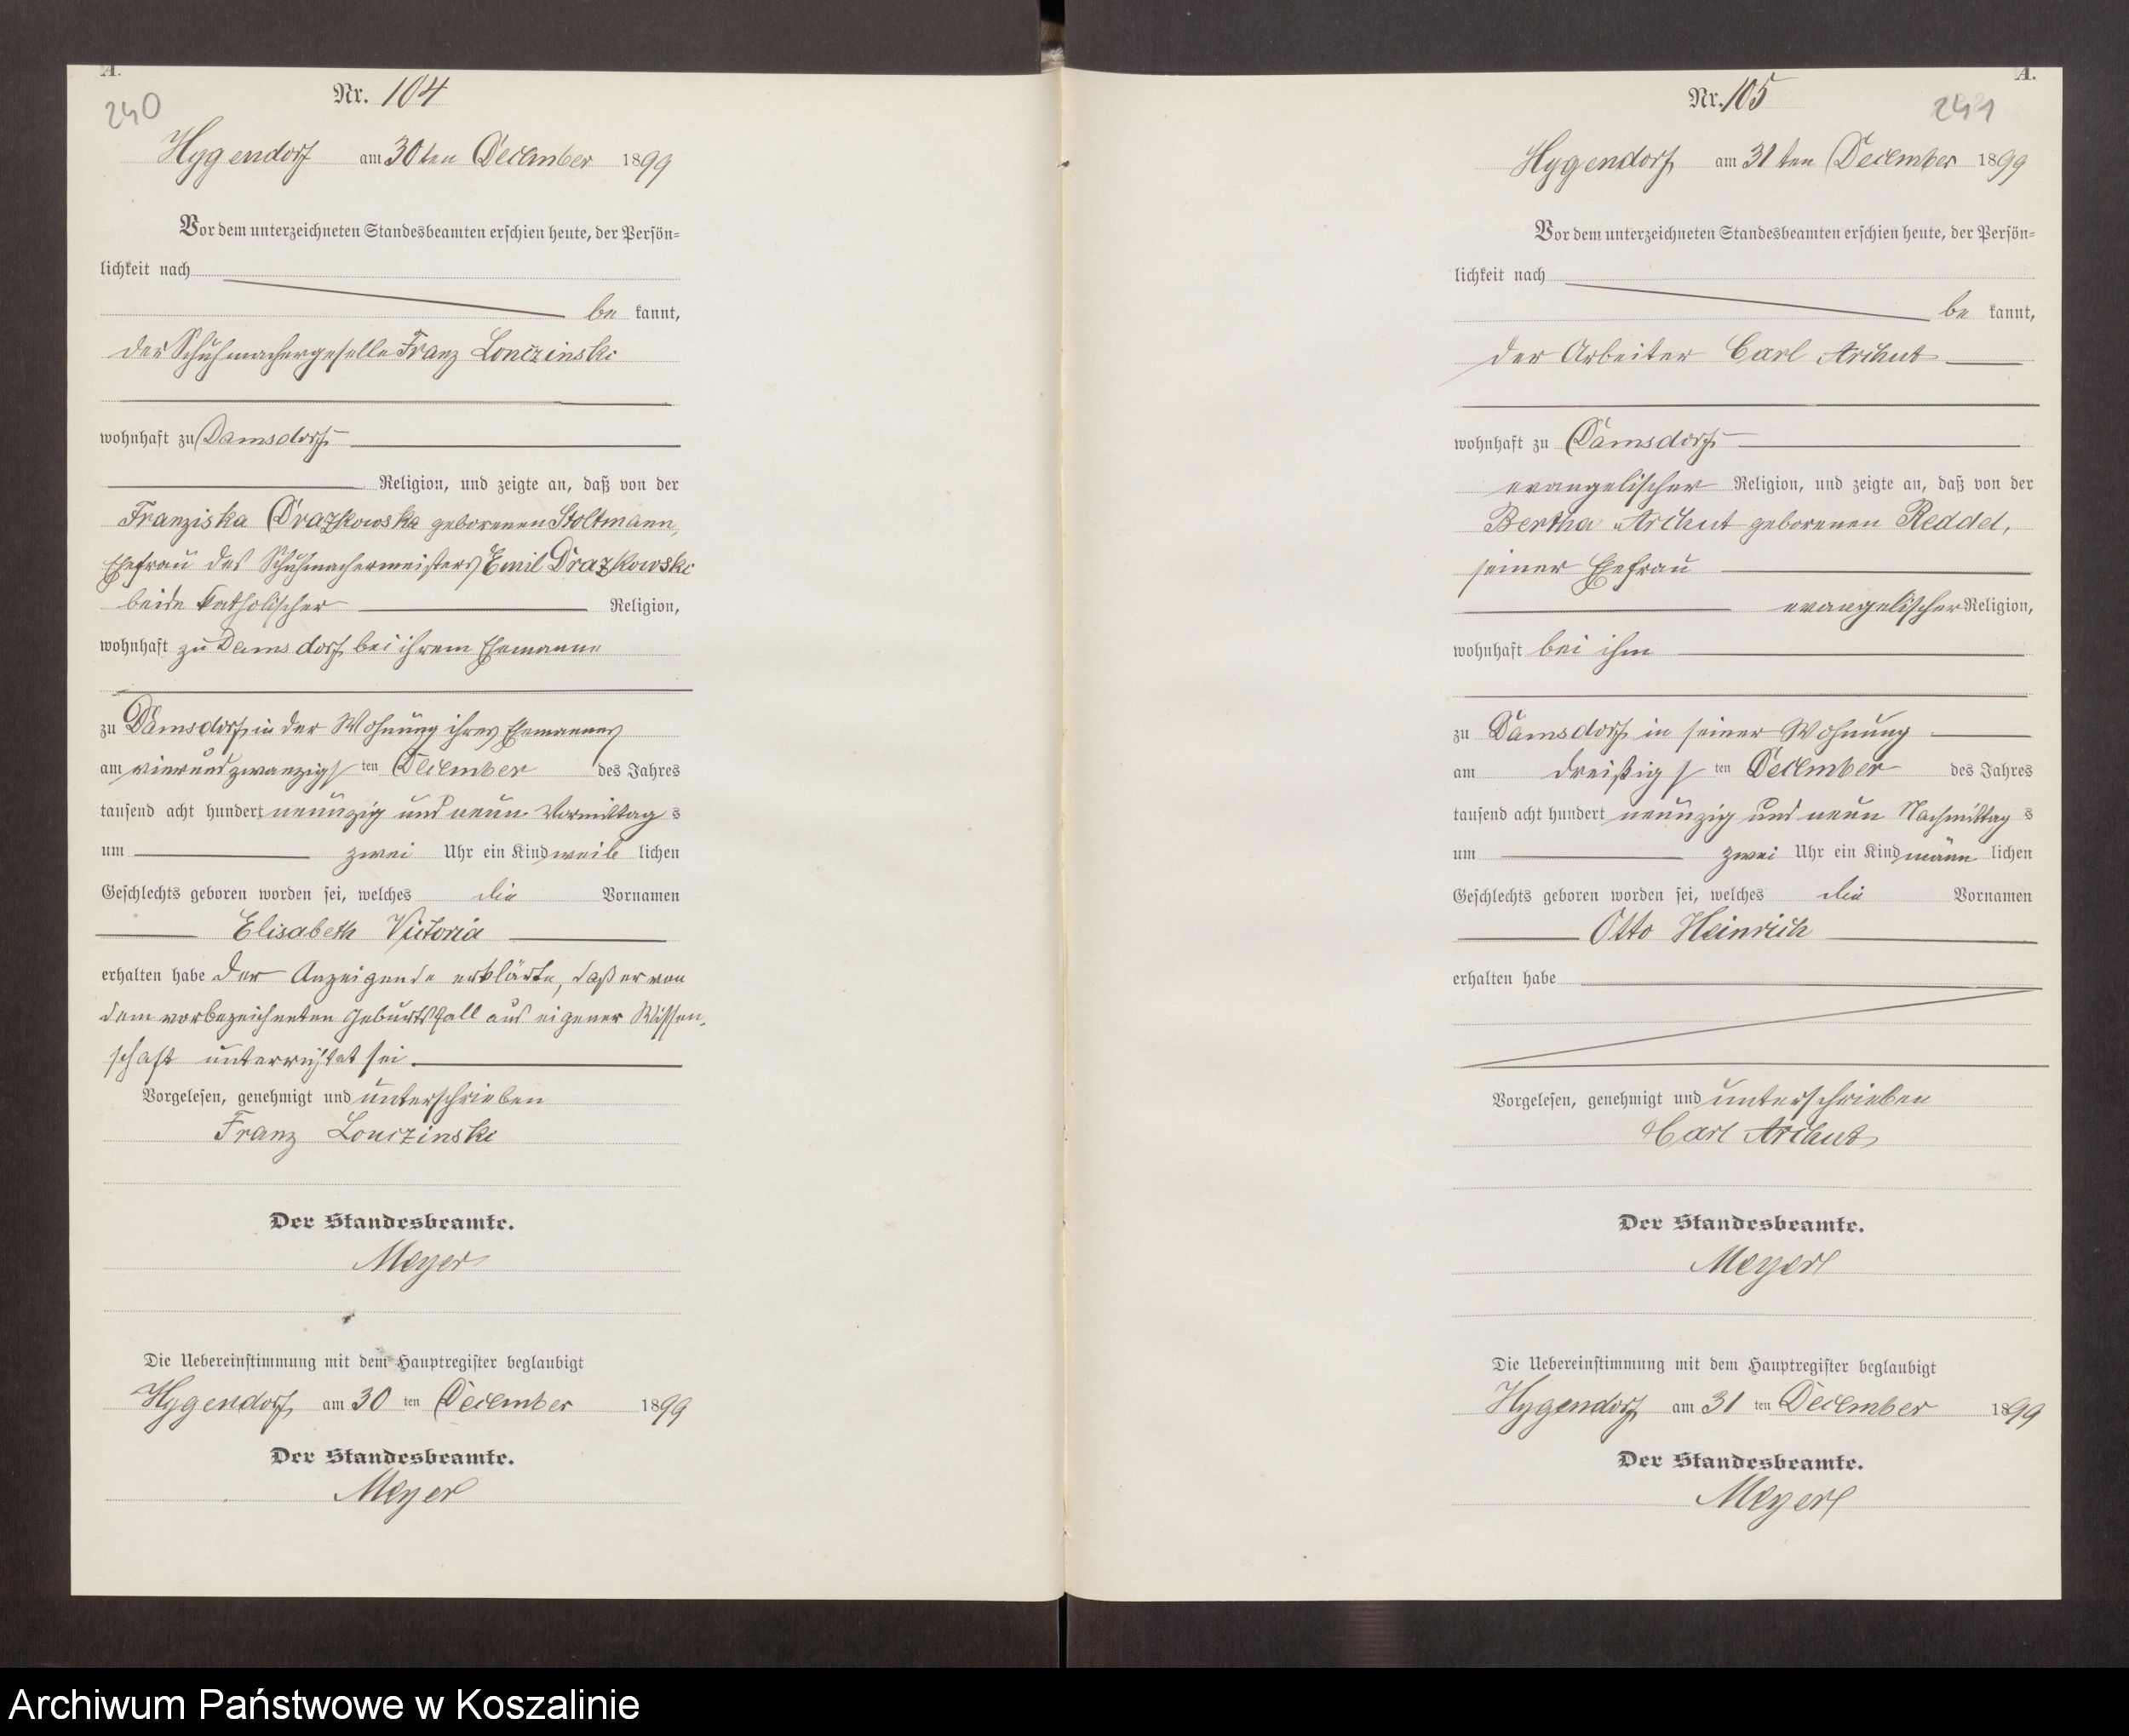 A.
240
Nr. 104
Hygendorf am 30ten December 1899
Vor dem unterzeichneten Standesbeamten erschien heute, der Persön=
lichkeit nach
be kannt,
der Schuhmachergeselle Franz Lonczinski
wohnhaft zu Damsdorf
Religion, und zeigte an, daß von der
Franziska Drazkowska geborenen Stoltmann,
Ehefrau des Schuhmachermeisters Emil Drazkowski
beide katholischer Religion,
wohnhaft zu Damsdorf bei ihrem Ehemanne
zu Damsdorf, in der Wohnung ihres Ehemannes
am vierundzwanzigsten December des Jahres
tausend acht hundert neunzig und neun Vormittags
um zwei Uhr ein Kind weiblichen
Geschlechts geboren worden sei, welches die Vornamen
Elisabeth Victoria
erhalten habe der Anzeigende erklärte, daß er von
dem vorbezeichneten Geburtsfall aus eigener Wissen-
schaft unterrichtet sei.
Vorgelesen, genehmigt und unterschrieben
Franz Lonczinski
Der Standesbeamte.
Meyer
Die Uebereinstimmung mit dem Hauptregister beglaubigt
Hygendorf, am 30 ten December 1899
Der Standesbeamte.
Meyer
A.
241
Nr. 105
Hygendorf, am 31ten December 1899
Vor dem unterzeichneten Standesbeamten erschien heute, der Persön=
lichkeit nach
be kannt,
der Arbeiter Carl Archut
wohnhaft zu Damsdorf
evangelischer Religion, und zeigte an, daß von der
Bertha Archut geborenen Reddel,
seiner Ehefrau
evangelischer Religion,
wohnhaft bei ihm
zu Damsdorf in seiner Wohnung
am dreißigsten December des Jahres
tausend acht hundert neunzig und neun Nachmittags
um zwei Uhr ein Kind männlichen
Geschlechts geboren worden sei, welches die Vornamen
Otto Heinrich
erhalten habe
Vorgelesen, genehmigt und unterschrieben
Carl Archut
Der Standesbeamte.
Meyer
Die Uebereinstimmung mit dem Hauptregister beglaubigt
Hygendorf, am 31 ten December 1899
Der Standesbeamte.
Meyer
Archiwum Państwowe w Koszalinie